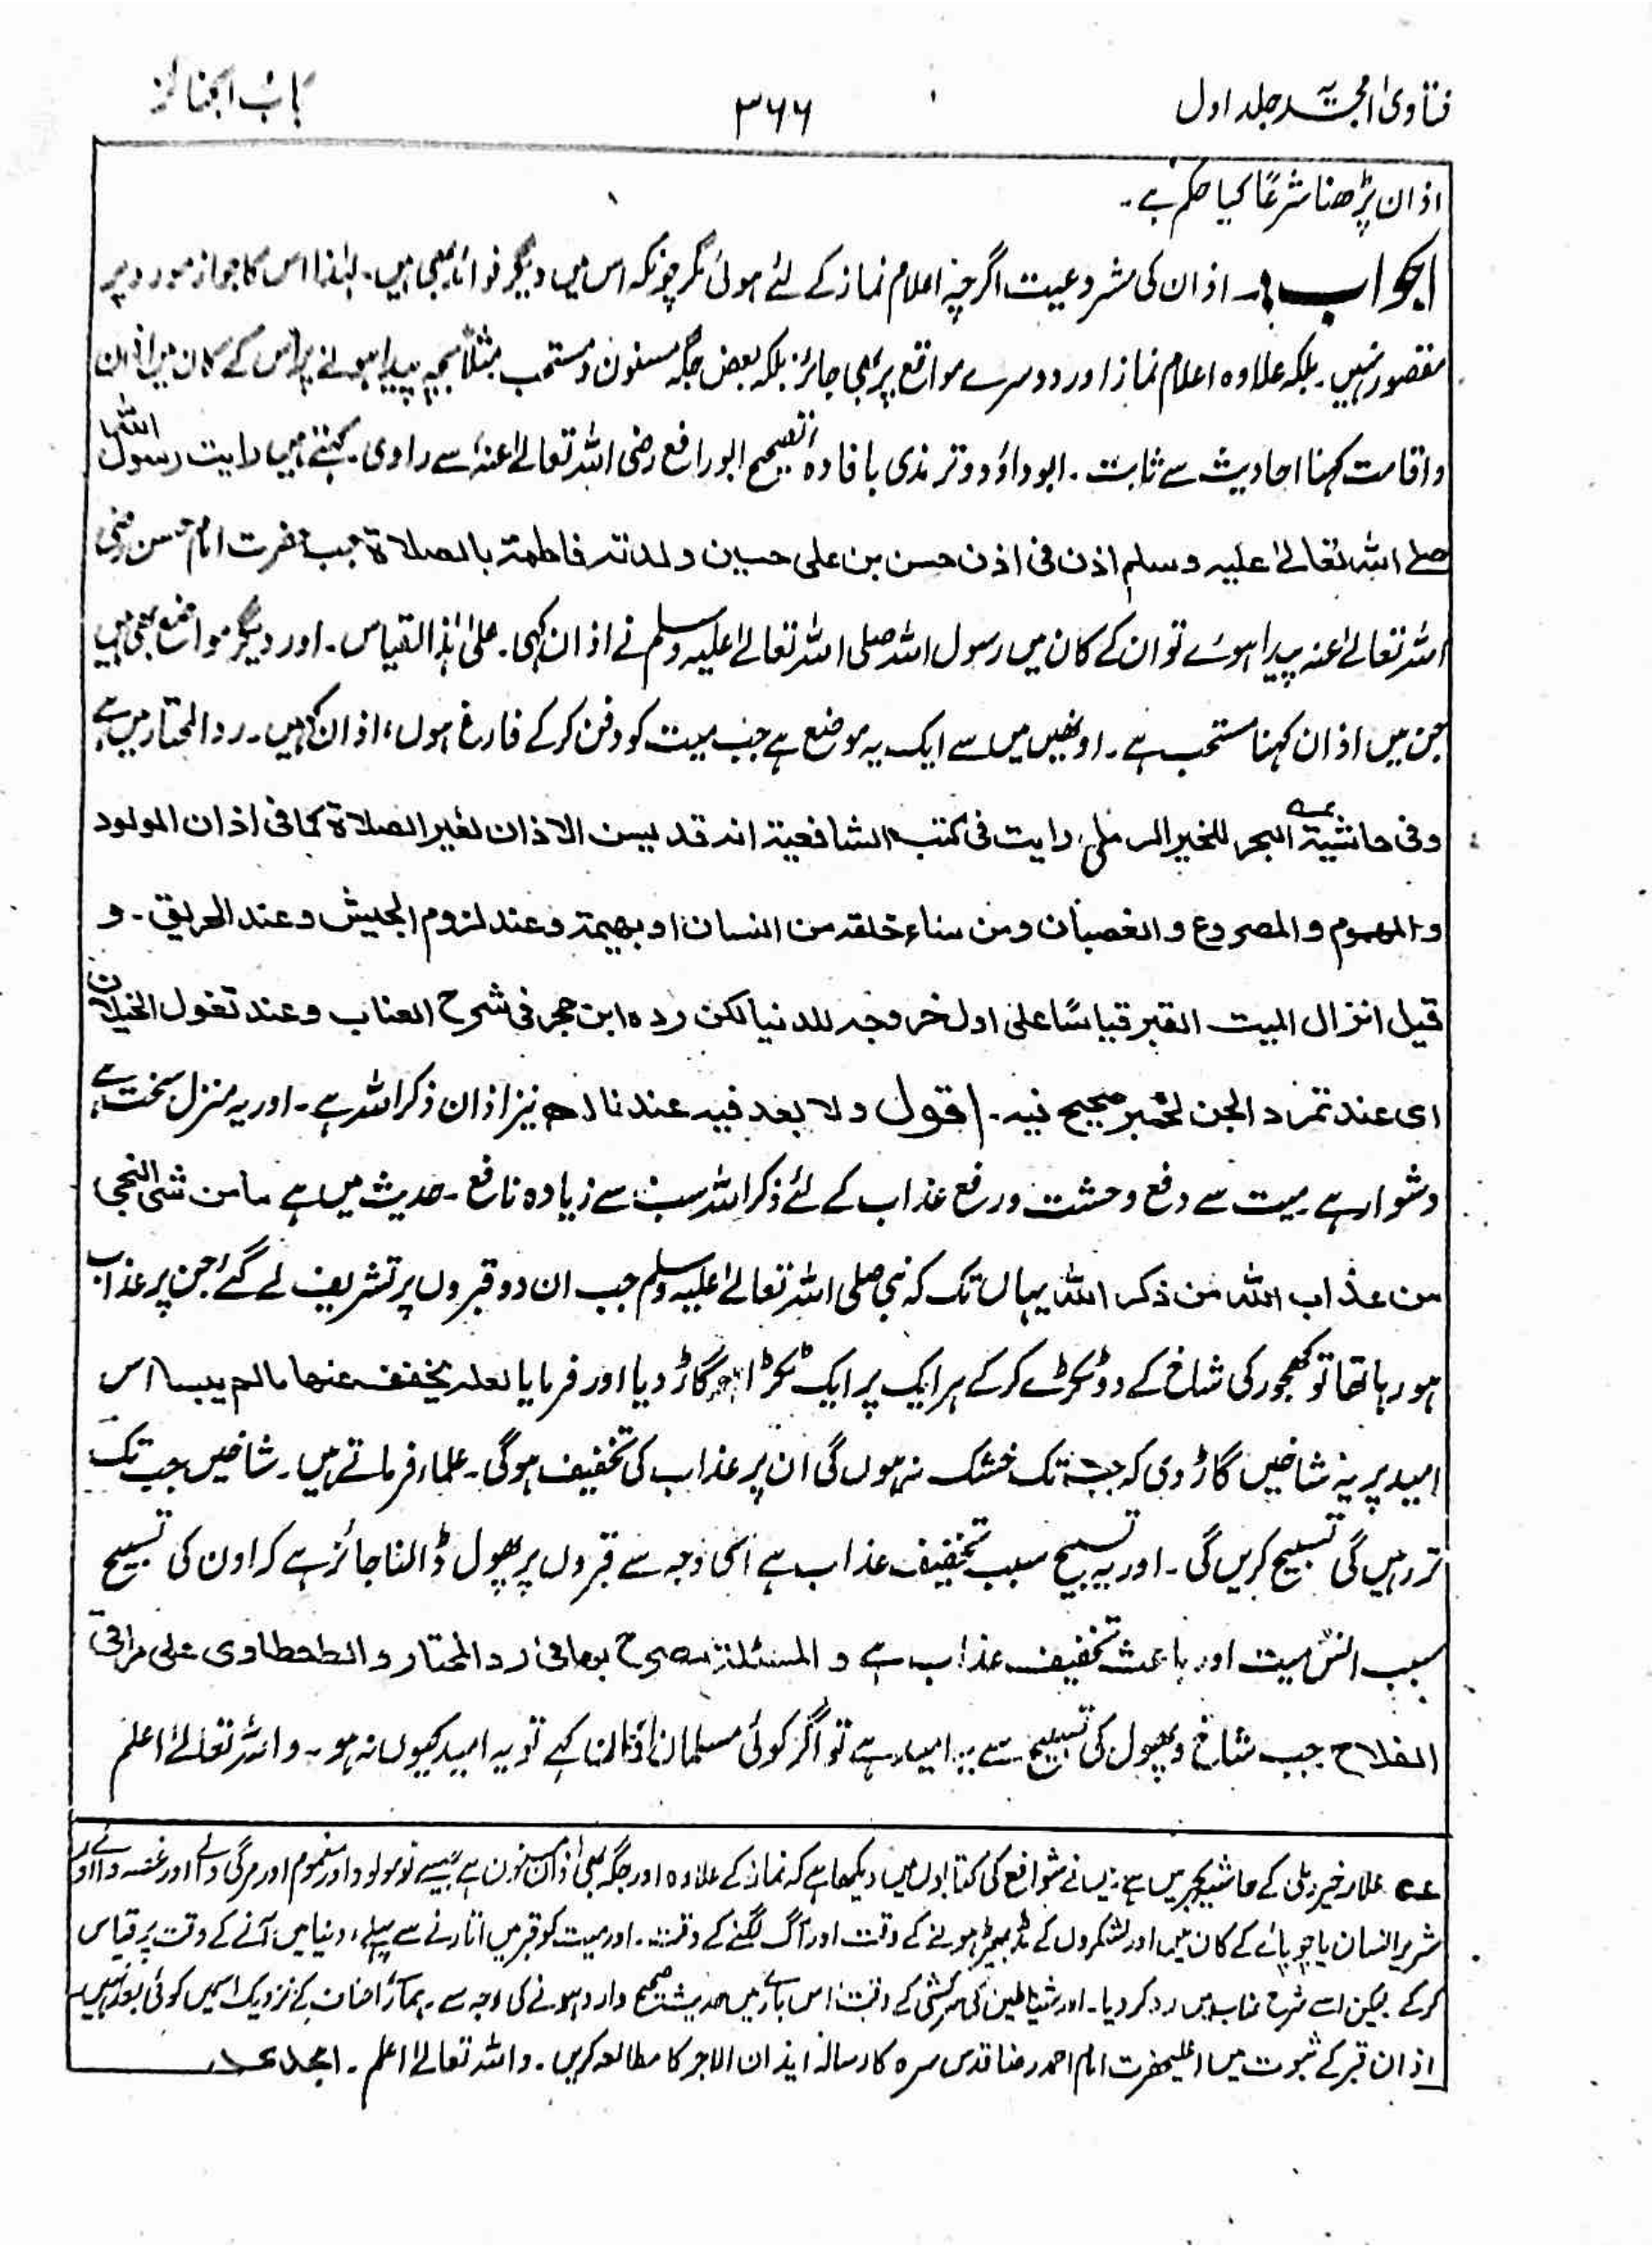 فتاویٰ امجدیہ جلد اول
۳۶۶
باب الجنائز
اذان پڑھنا شرعًا کیا حکم ہے۔
الجواب :۔ اذان کی مشروعیت اگرچہ اعلام نماز کے لئے ہوئی مگر چونکہ اس میں دیگر فوائد بھی ہیں۔ لہٰذا اس کا جواز مورد پر
مقصور نہیں۔ بلکہ علاوہ اعلام نماز اور دوسرے مواقع پر بھی جائز بلکہ بعض جگہ مسنون و مستحب مثلاً بچہ پیدا ہونے پر اس کے کان میں اذان
و اقامت کہنا احادیث سے ثابت۔ ابوداؤد و ترمذی بافادہ تصحیح ابو رافع رضی اللہ تعالےٰ عنہ سے راوی۔ کہتے ہیں رایت رسول اللہ
صلے اللہ تعالےٰ علیہ وسلم اذن فی اذن حسن بن علی حسین ولدتہ فاطمۃ بالصلاۃ جب حضرت امام حسن رضی
اللہ تعالےٰ عنہ پیدا ہوئے تو ان کے کان میں رسول اللہ صلی اللہ تعالےٰ علیہ وسلم نے اذان کہی۔ علیٰ ہذا القیاس۔ اور دیگر مواضع بھی ہیں
جن میں اذان کہنا مستحب ہے۔ اونھیں میں سے ایک یہ موضع ہے جب میت کو دفن کرکے فارغ ہوں، اذان کہیں۔ ردالمحتار میں ہے
وفی حاشیۃ البحر للخیر الرملی رایت فی کتب الشافعیۃ انہ قد یسن الاذان لغیر الصلاۃ کما فی اذان المولود
و المھموم و المصروع و الغضبان ومن ساء خلقہ من انسان او بھیمۃ وعند لزوم الجیش وعند الحریق۔ و
قیل انزال المیت القبر قیاسًا علی اول خروجہ للدنیا لکن ردہ ابن حجر فی شرح العناب وعند تغول الغیلان
ای عند تمرد الجن لخبر صحیح فیہ۔ اقول ولا بعد فیہ عندنا اھ نیز اذان ذکر اللہ ہے۔ اور یہ منزل سخت ہے
دشوار ہے میت سے دفع وحشت و رفع عذاب کے لئے ذکر اللہ سب سے زیادہ نافع۔ حدیث میں ہے ما من شئ انجی
من عذاب اللہ من ذکر اللہ یہاں تک کہ نبی صلی اللہ تعالےٰ علیہ وسلم جب ان دو قبروں پر تشریف لے گئے جن پر عذاب
ہو رہا تھا تو کھجور کی شاخ کے دو ٹکڑے کرکے ہر ایک پر ایک ٹکڑا گاڑ دیا اور فرمایا لعلہ یخفف عنھا مالم ییبسا اس
امید پر یہ شاخیں گاڑ دی کہ جب تک خشک نہ ہوں گی ان پر عذاب کی تخفیف ہوگی۔ علماء فرماتے ہیں۔ شاخیں جب تک
تر رہیں گی تسبیح کریں گی۔ اور یہ تسبیح سبب تخفیف عذاب ہے اسی وجہ سے قبروں پر پھول ڈالنا جائز ہے کہ اون کی تسبیح
سبب انس میت اور باعث تخفیف عذاب ہے و المسئلۃ مصرح بھا فی ردالمحتار و الطحطاوی علی مراقی
الفلاح جب شاخ و پھول کی تسبیح سے یہ امید ہے تو اگر کوئی مسلمان اذان کہے تو یہ امید کیوں نہ ہو۔ واللہ تعالےٰ اعلم
علامہ خیر رملی کے حاشیہ بحر میں ہے میں نے شوافع کی کتابوں میں دیکھا ہے کہ نماز کے علاوہ اور جگہ بھی اذان مسنون ہے جیسے نومولود اور مغموم اور مرگی والے اور غصہ والے اور
شریر انسان یا چوپائے کے کان میں اور لشکروں کے مڈبھیڑ ہونے کے وقت اور آگ لگنے کے وقت۔ اور میت کو قبر میں اتارنے سے پہلے، دنیا میں آنے کے وقت پر قیاس
کرکے لیکن اسے شرح عناب میں رد کر دیا۔ اور شیاطین کی سرکشی کے وقت اس بارے میں حدیث صحیح وارد ہونے کی وجہ سے ہمارے احناف کے نزدیک اسمیں کوئی بعد نہیں
اذان قبر کے ثبوت میں اعلیحضرت امام احمد رضا قدس سرہ کا رسالہ ایذان الاجر کا مطالعہ کریں۔ واللہ تعالےٰ اعلم۔ امجدی